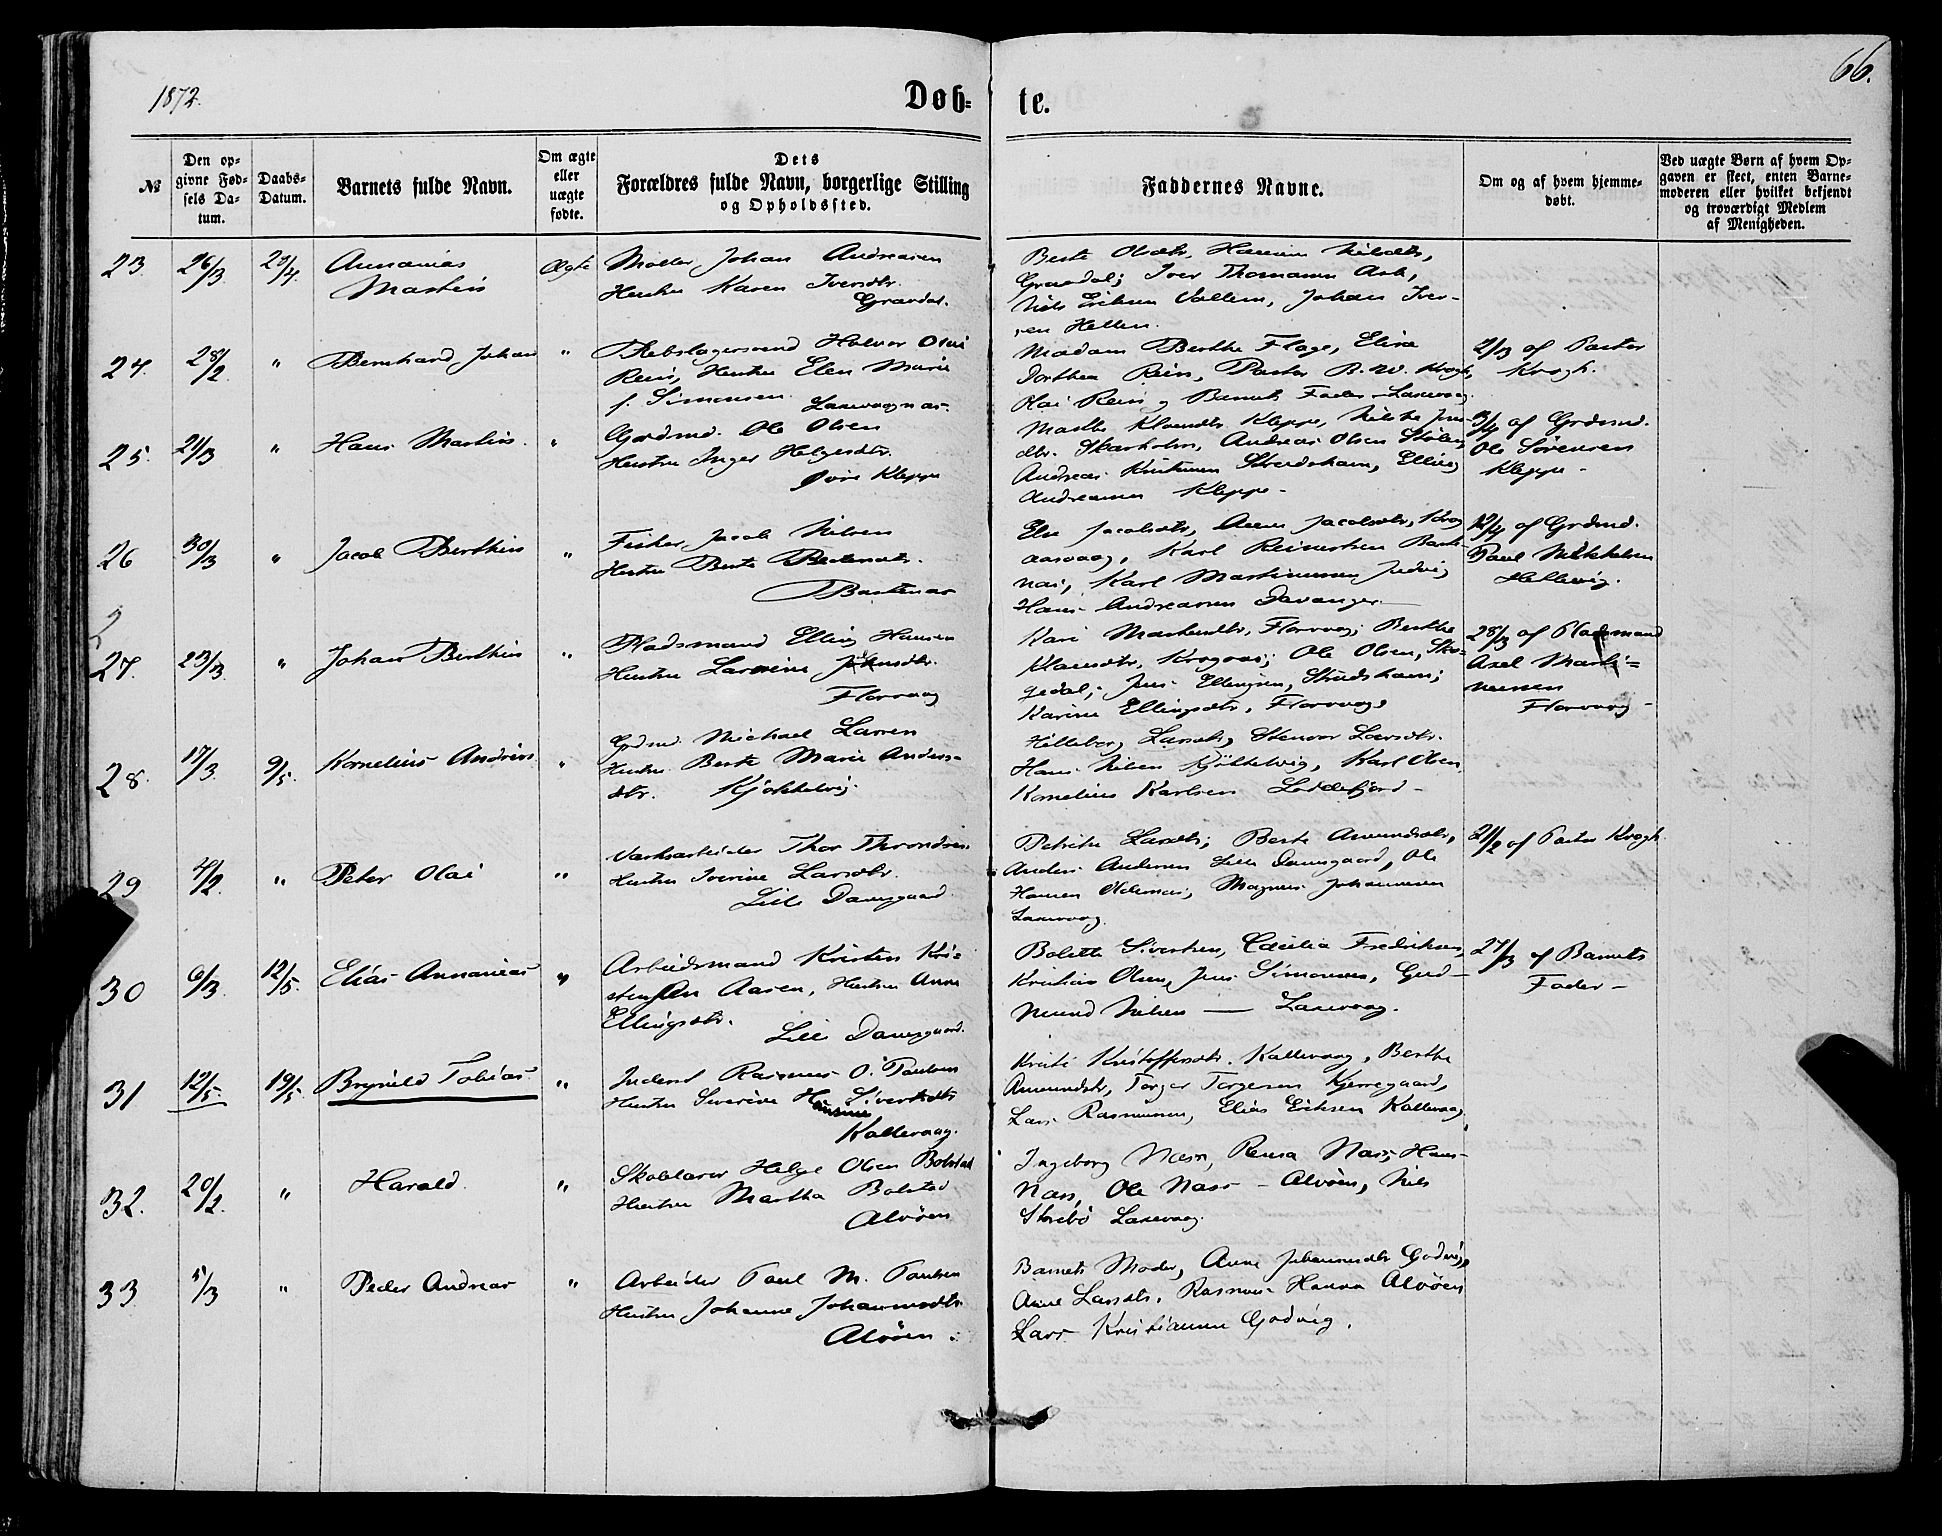 1872.
66.
Døb-
te.
№
Den op-
givne Fød-
sels Da-
tum.
Daabs-
Datum.
Barnets fulde Navn.
Om ægte
eller
uægte
fødte.
Dets
Forældres fulde Navn, borgerlige Stilling
og Opholdssted.
Faddernes Navne.
Om og af hvem hjemme-
døbt.
Ved uægte Børn af hvem Op-
gaven er skeet, enten Barne-
moderen eller hvilket bekjendt
og troværdigt Medlem
af Menigheden.
23. 26/3 Annanias
Martin
Ægte
Møller, Johan Andreasen
Hustru Karen Iversdtr.
Gravdal.
Gravdal; Iver Thomasen Ask,
Niels Eriksen Vallem, Johan Iver-
sen Hellen.
24. 28/2 " Bernhard Johan "
Rebslagersvend Halvor Olai
Rein, Hustru Elen Marie
f. Simonsen Laxevaagnæs.
Madam Berthe Flage, Elise
Dorthea Rein, Pastor Krogh,
Olai Rein og Barnets Fader Laxevaag.
2/3 af Pastor
Krogh.
25. 21/3 " Hans Martin "
Grdmd. Ole Olsen
Hustru Inger Helgesdtr.
Øvre Kleppe
Andreas Olsen
Andreas Kristensen Strudshavn, Elling
Andreassen Kleppe
3/4 af Grdmd.
Ole Sørensen
Kleppe
26 30/3 " Jacob Berthin "
Fisker, Jacob Nilsen
Hustru Berte Pedersdtr.
Bastenæs
Jacobsdtr, Anne Jacobsdtr, Krog
aasvaag, Karl Reinertsen Baste-
næs, Karl Martinussen
Hans Andreassen Davanger
12/4 af Grdmd.
Paul Mikkelsen
Hellevig.
27. 23/3 " Johan Berthin "
Pladsmand Elling Hansen
Hustru Larsine
Florvaag
Kari Florvaag; Berthe
Klausdtr, Krogaas; Ole Olsen, Sko-
gedal; Jens Ellingsen, Strudshavn;
Karine Ellingsdtr, Florvaag
28/3 af Pladsmand
Axel Marti-
nussen
Florvaag
28. 17/3 9/5. Kornelius Andreas "
Grdmd. Michael Larsen
Hustru Berte Marie Anders-
dtr. Kjøkkelvig
Hilleborg Larsdtr, Stensor Larsdtr.
Hans Nilsen Kjøkkelvig, Karl Olsen,
Kornelius Karlsen Loddefjord
29 4/2. " Peter Olai "
Værksarbeider Thor Throndsen
Hustru Iverine Larsdtr.
Lille Damsgaard
Petrike Larsdtr, Berte Amundsdtr,
Anders Andersen Lille Damsgaard, Ole
Hansen Magnus Johannesen
Laxevaag.
21/2 af Pastor Krogh
30 6/3. 12/5. Elias Annanias "
Arbeidsmand Kristen Kri-
stensen Aasen, Hustru Anne
Ellingsdtr.
Lille Damsgaard.
Bolette Sivertsen, Cæcilia Fredriksen,
Kristian Olsen, Jens Simonsen, Gud-
mund Nilsen Laxevaag.
27/3 af Barnets
Fader
31 12/5. 19/5. Brynild Tobias "
Inderst Rasmus O. Paulsen
Hustru Severine Sivertsdtr
Kallevaag.
Kristi Kristoffersdtr. Kallevaag, Berthe
Amundsdtr, Torger Torgersen Kjerregaard,
Lars Rasmussen, Elias Eriksen Kallevaag.
32. 20/2. " Harald. "
Skolelærer Helge Olsen Bolstad
Hustru Martha Bolstad
Alvøen
Ingeborg Næss, Næss, Hans
Næss, Ole Næss Alvøen, Nils
Storebø Laxevaag.
33 5/3 " Peder Andreas "
Arbeider Paul M. Paulsen
Hustru Johanne Johannesdtr
Alvøen.
Barnets Moder, Anne Johannesdtr Godvig,
Anne Larsdtr, Rasmus Hansen Alvøen
Lars Kristiansen Godvig.